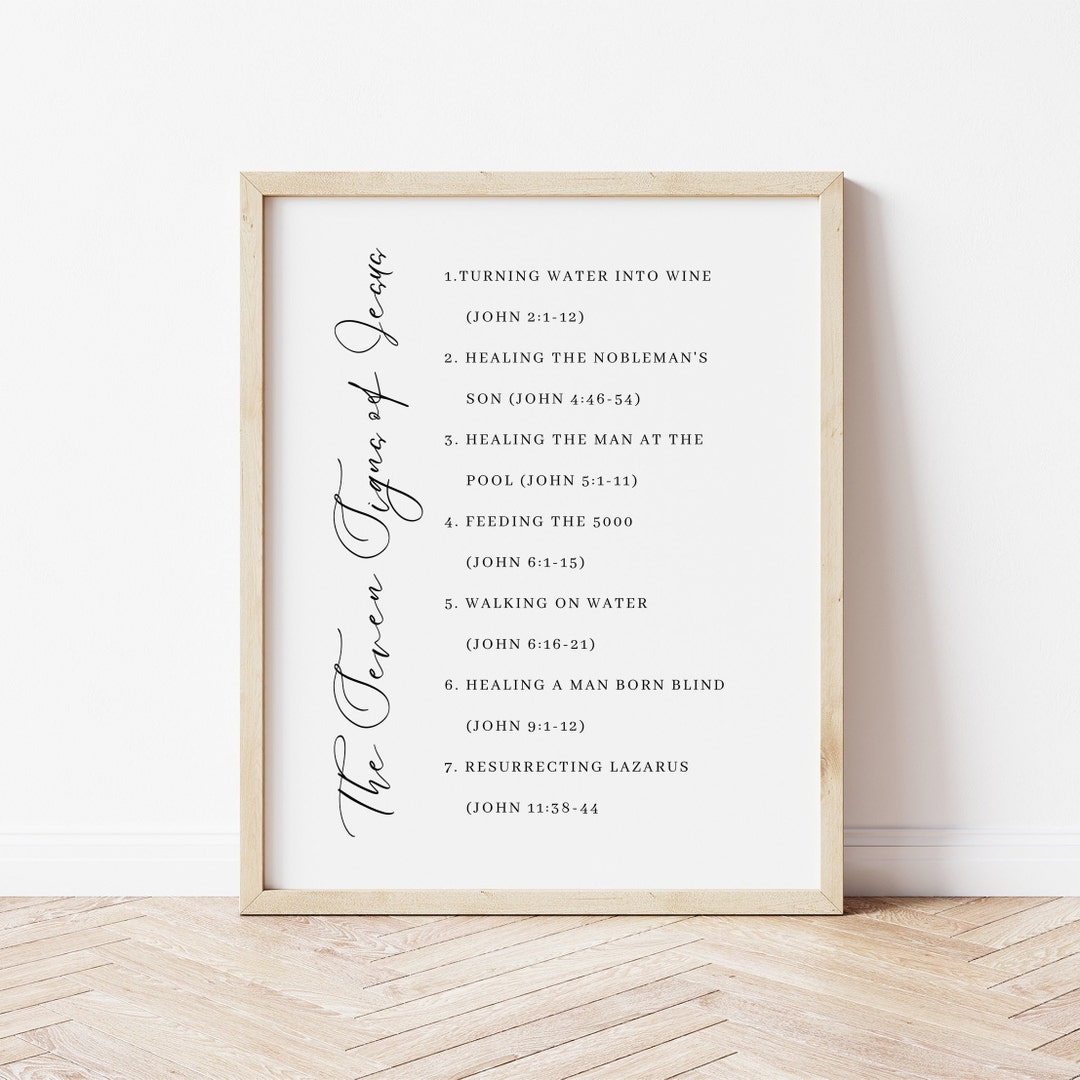 The Seven Signs of Jesus
1.TURNING WATER INTO WINE
(JOHN 2:1-12)
2. HEALING THE NOBLEMAN'S
SON (JOHN 4:46-54)
3. HEALING THE MAN AT THE
POOL (JOHN 5:1-11)
4. FEEDING THE 5000
(JOHN 6:1-15)
5. WALKING ON WATER
(JOHN 6:16-21)
6. HEALING A MAN BORN BLIND
(JOHN 9:1-12)
7. RESURRECTING LAZARUS
(JOHN 11:38-44